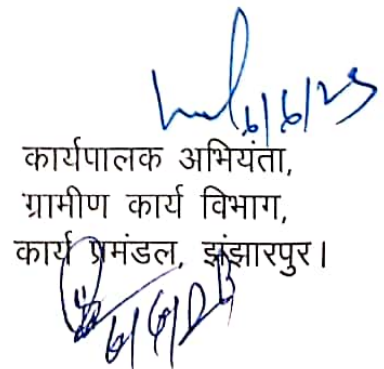 6/6/25
कार्यपालक अभियंता,
ग्रामीण कार्य विभाग,
कार्य प्रमंडल, झंझारपुर।